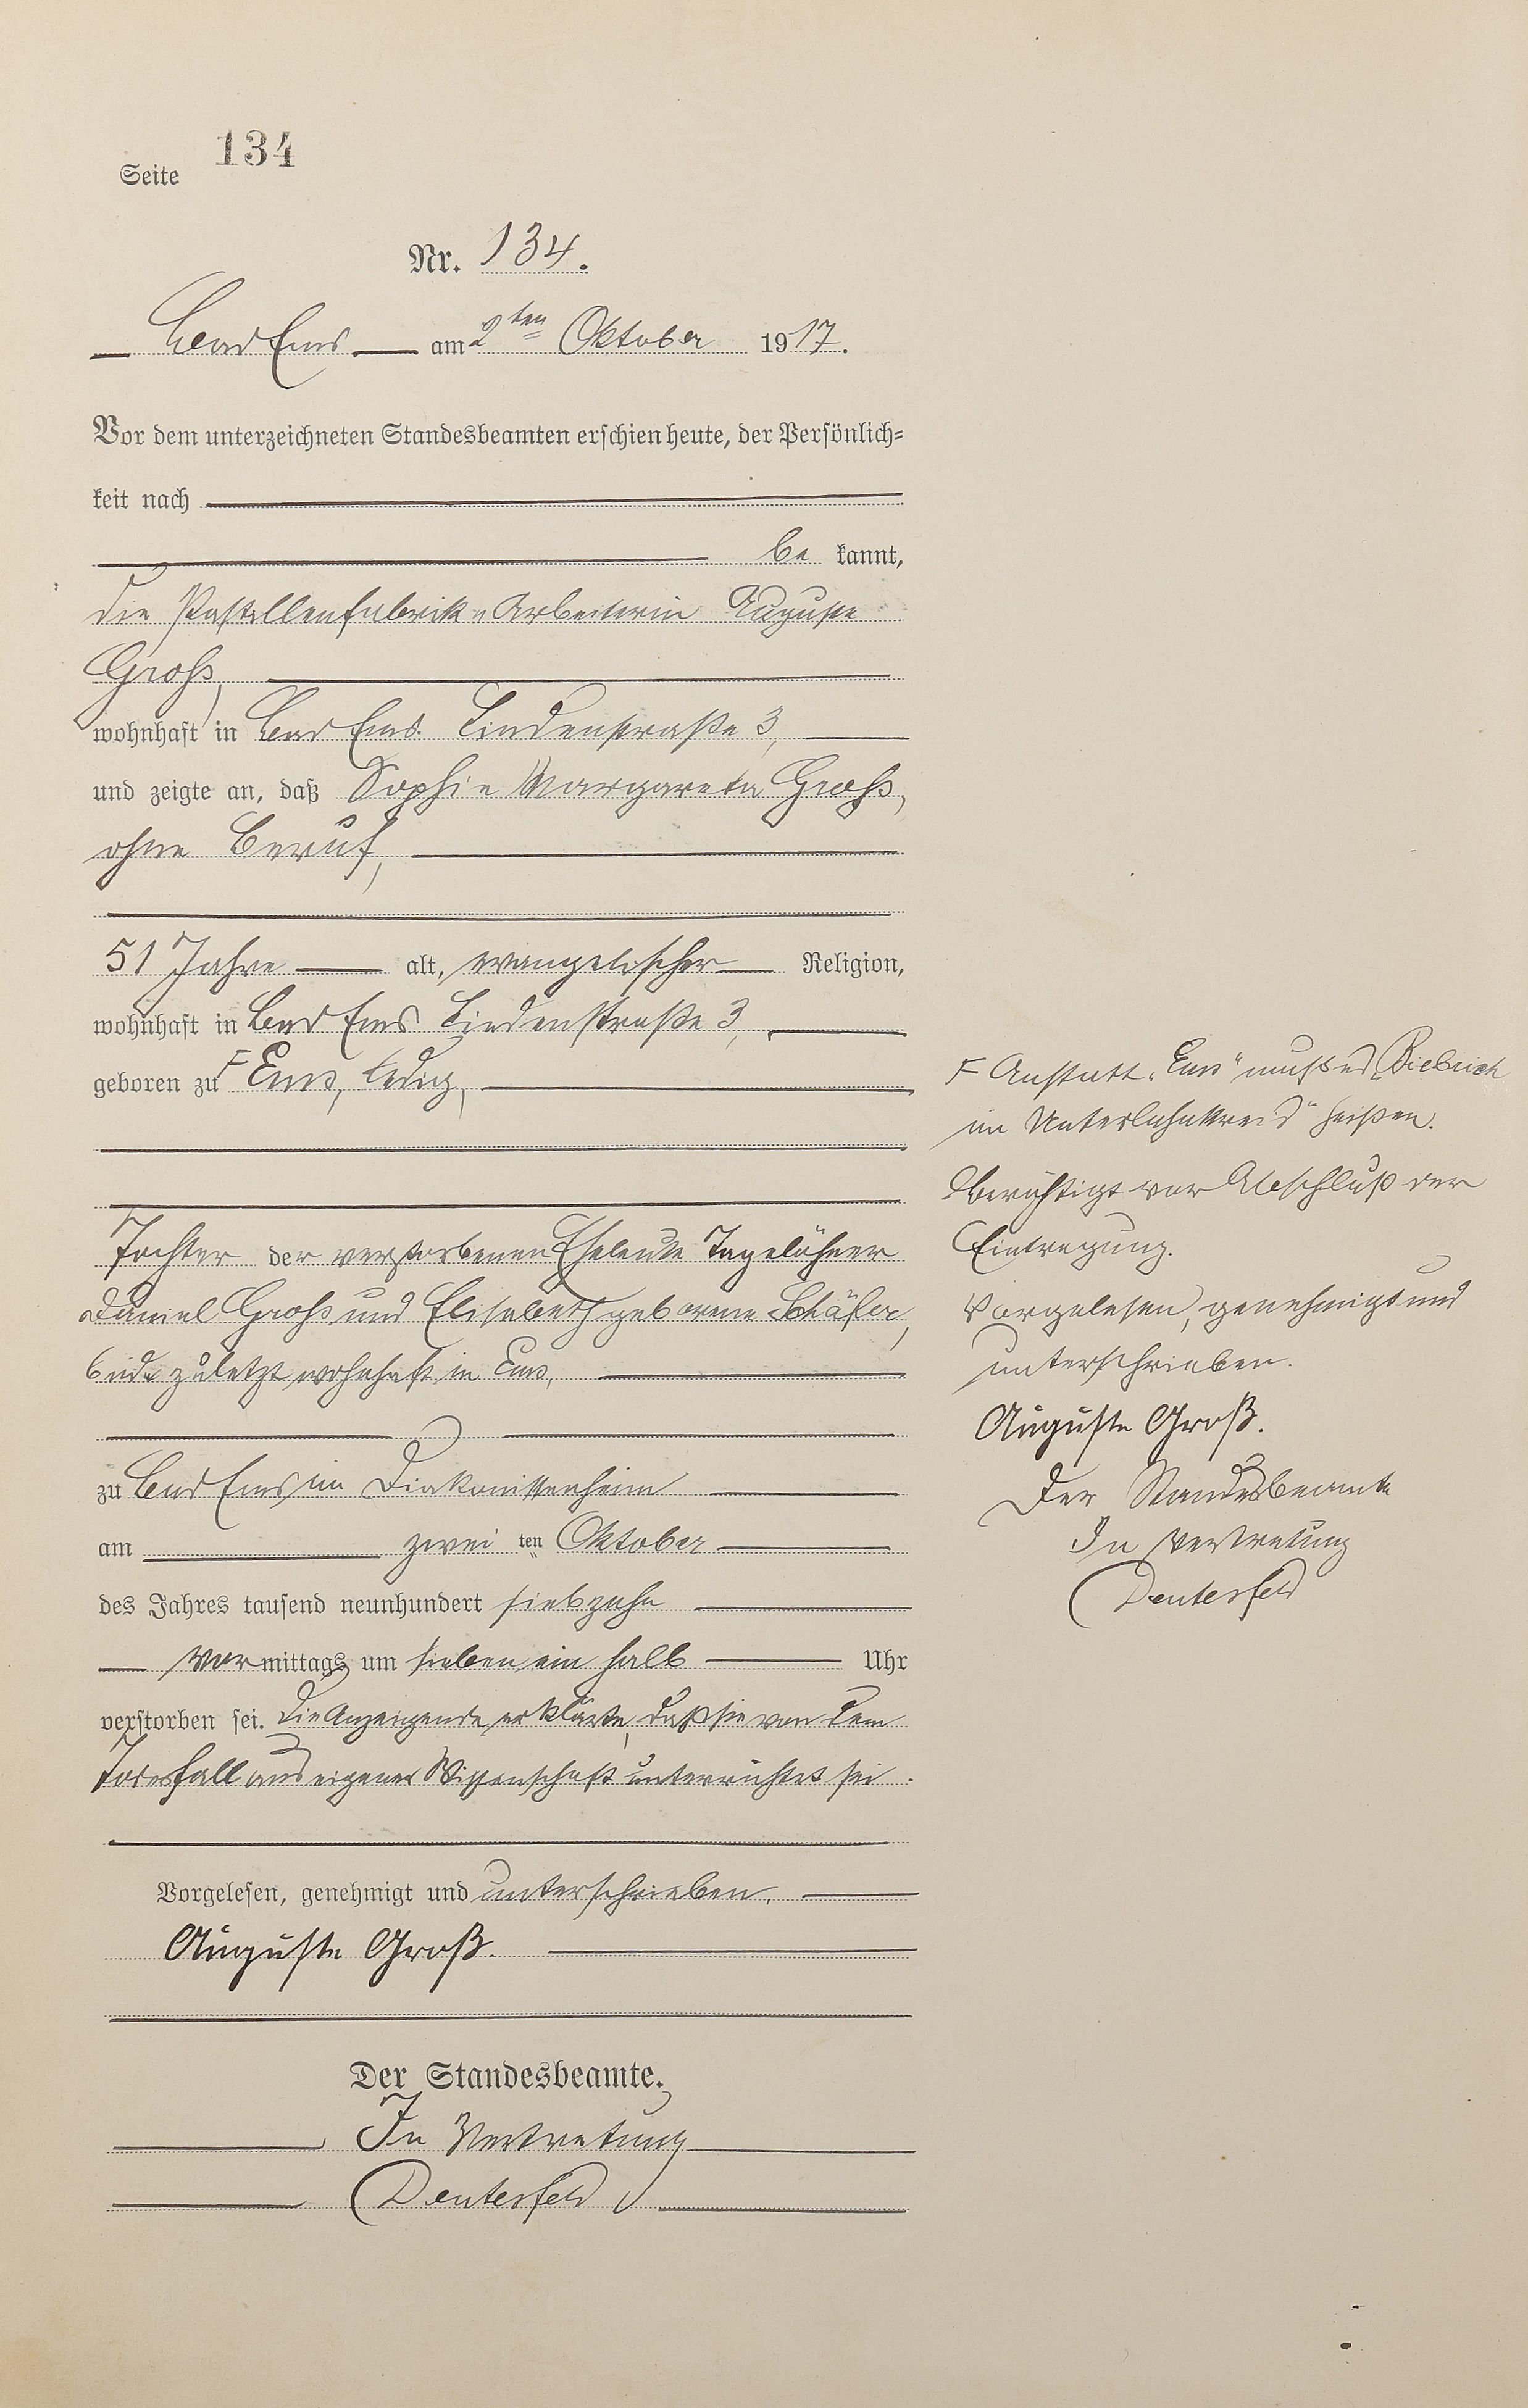 Seite 134
Nr. 134.
Bad Ems am 2ten Oktober 1917.
Vor dem unterzeichneten Standesbeamten erschien heute, der Persönlich-
keit nach
be kannt,
die Pastillenfabrik-Arbeiterin Auguste
Groß,
wohnhaft in Bad Ems Lindenstraße 3,
und zeigte an, daß Sophie Margareta Groß,
ohne Beruf,
51 Jahre alt, evangelischer Religion,
wohnhaft in Bad Ems Lindenstraße 3,
geboren zu Ems, ledig,
Tochter der verstorbenen Eheleute Tagelöhner
Daniel Groß und Elisabeth geborene Schäfer,
beide zuletzt wohnhaft in Ems,
zu Bad Ems im Diakonissenheim
am zwei ten Oktober
des Jahres tausend neunhundert siebzehn
Vor mittags um sieben ein halb Uhr
verstorben sei. Die Anzeigende erklärte, daß sie von dem
Todesfall aus eigener Wissenschaft unterrichtet sei.
Vorgelesen, genehmigt und unterschrieben.
Auguste Groß.
Der Standesbeamte.
In Vertretung
Deutesfeld
F Anstatt „Ems" muß es „Biebrich
im Unterlahnkreis" heißen.
Berichtigt vor Abschluß der
Eintragung.
Vorgelesen, genehmigt und
unterschrieben.
Auguste Groß.
Der Standesbeamte
In Vertretung
Deutesfeld